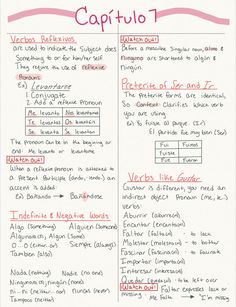 Capítulo 7
Verbos Reflexivos
are used to indicate the subject does
something to or for him/her self
They require the use of reflexive
Pronouns
Ex) Levantarse
1. Conjugate
2. Add a reflexive pronoun
Me levanto Nos levantamos
Te levantas Os levantáis
Se levanta Se levantan
The pronoun can be in the beginning or
end: Me levanto or levantarme
Watch out!
When a reflexive pronoun is attached to
a Present Participle (ando, iendo), an
accent is added
Ex) Bañando → Bañándose
Indefinite & Negative Words
Algo (Something) Alguien (Someone)
Alguno/a/os/as, Algún (Some)
O...o (either...or) Siempre (always)
También (also)
Nada (nothing) Nadie (no one)
Ninguno/a, ningún (none)
ni...ni (neither...nor) Nunca (never)
Tampoco (neither)
Watch out!
Before a masculine singular noun, alguno &
Ninguno are shortened to algún &
ningún
Preterite of Ser and Ir
The preterite forms are identical,
so Context clarifies which verb
you are using
Ex) Él fue
Fui Fuimos
Fuiste
Fue Fueron
Verbs like Gustar
Gustar is different, you need an
indirect object Pronoun (me, te,)
verbs
Aburrir (aburrir)
Encantar (encantar)
Faltar (faltar) - to lack
Molestar (molestar) - to bother
Fascinar (fascinar) - to fascinate
Importar (importar)
Interesar (interesar)
Quedar (quedar) - to be left over
Watch out! Faltar expresses lack or
missing Me falta → "I'm missing